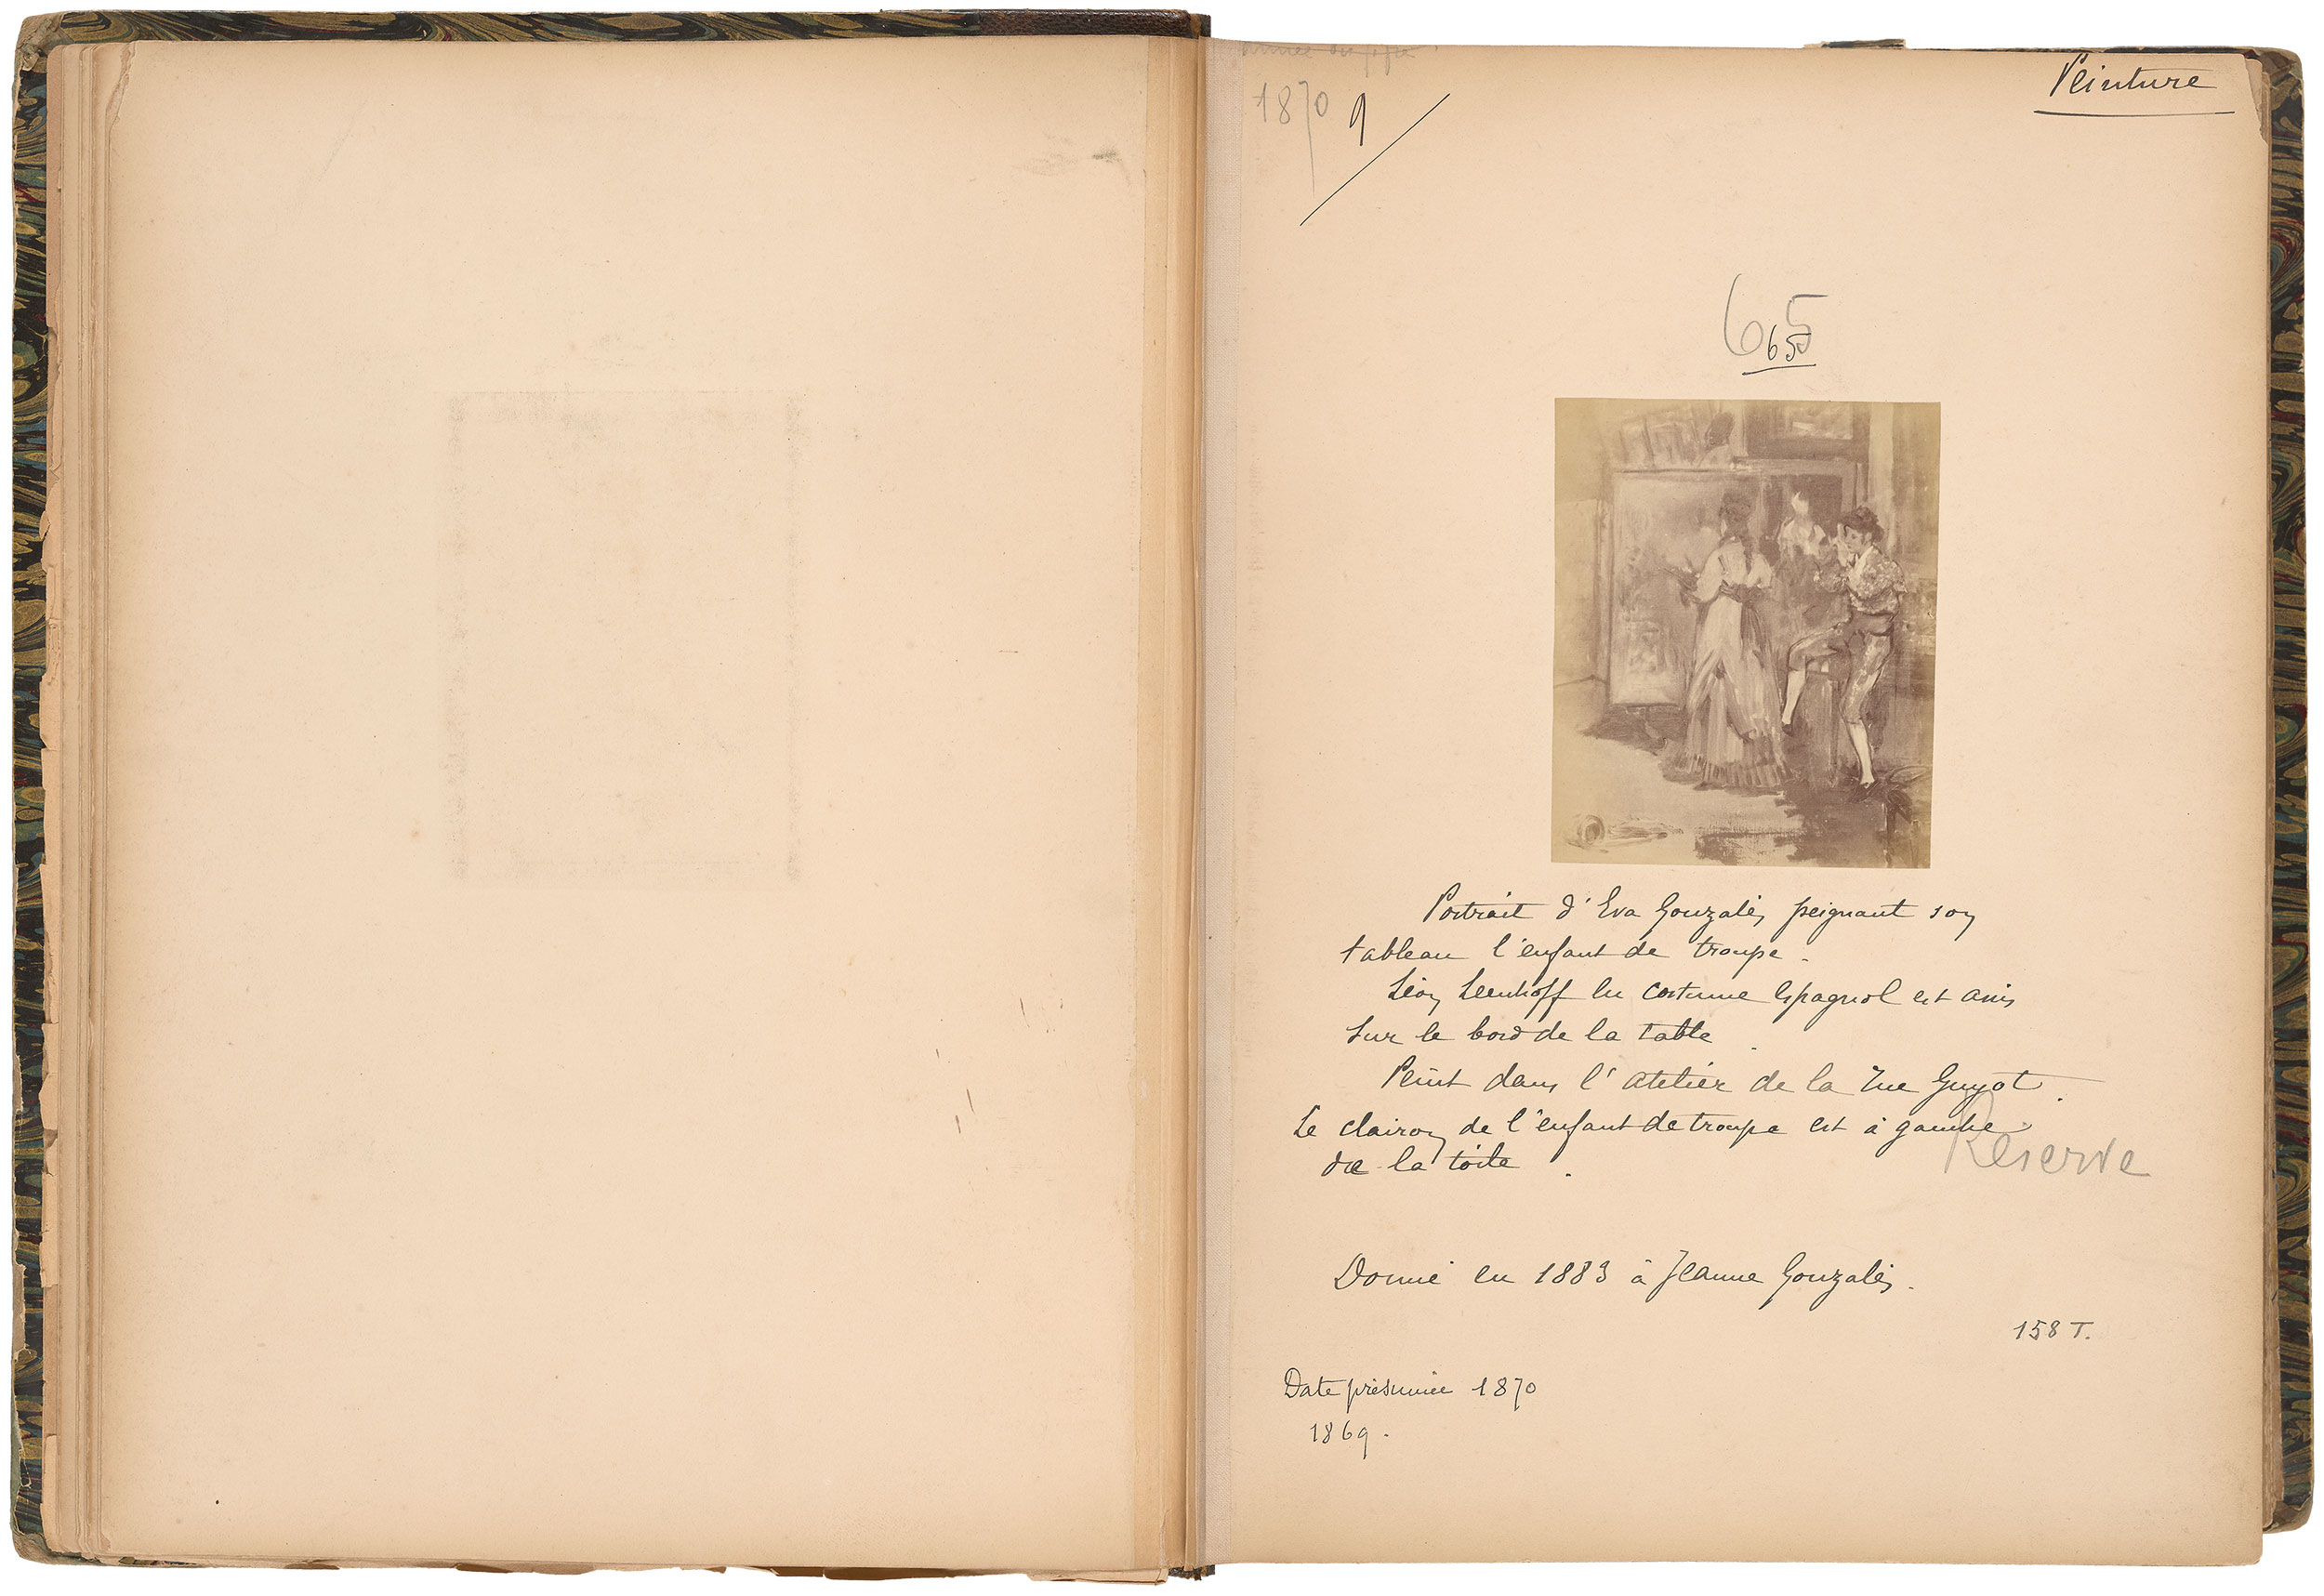 Peinture
1870 9
65
65
Portrait d'Eva Gonzalès peignant son
tableau l'enfant de troupe.
Léon Leenhoff en costume espagnol est assis
sur le bord de la table.
Peint dans l'atelier de la rue Guyot.
Le clairon de l'enfant de troupe est à gauche
de la toile.
Réserve
Donné en 1883 à Jeanne Gonzalès.
158 T.
Date présumée 1870
1869.